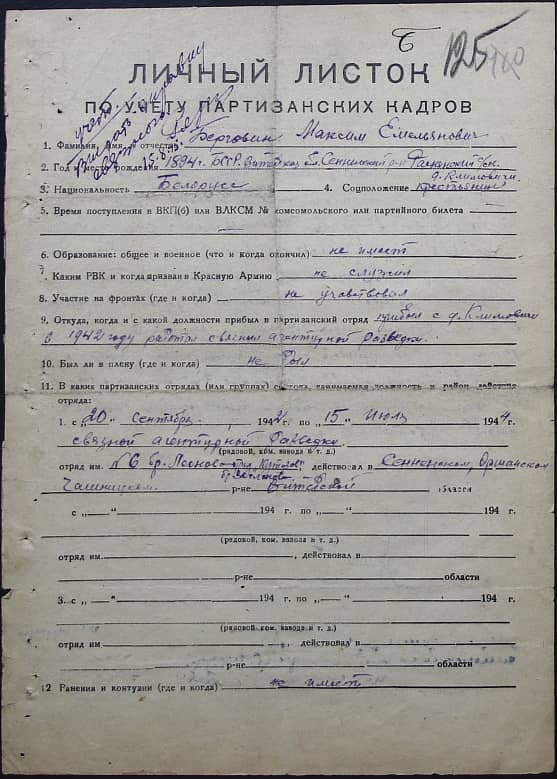 Б
125
ЛИЧНЫЙ ЛИСТОК
ПО УЧЕТУ ПАРТИЗАНСКИХ КАДРОВ
1. Фамилия, имя и отчество Берговин Максим Емельянович
2. Год и место рождения 1894 г. БССР. Витебская обл. Сенненский р-н
д. Климовичи
3. Национальность Белорусс 4. Соцположение крестьянин
5. Время поступления в ВКП(б) или ВЛКСМ № комсомольского или партийного билета
6. Образование: общее и военное (что и когда окончил) не имеет
7. Каким РВК и когда призван в Красную Армию не служил
8. Участие на фронтах (где и когда) не учавствовал
9. Откуда, когда и с какой должности прибыл в партизанский отряд прибыл с д. Климовичи
в 1942 году работал связной агентурной разведки.
10. Был ли в плену (где и когда) не был
11. В каких партизанских отрядах (или группах) состоял, занимаемая должность и район действия
отряда:
1. с „20" Сентября 1942 г. по „15" Июля 1944 г.
связной агентурной разведки
(рядовой, ком. взвода и т. д.)
отряд им. № 6 бр. Леонова действовал в Сенненском, Оршанском
Чашницком р-не Витебской область
с „ " 194 г. по „ " 194 г.
(рядовой, ком. взвода и т. д.)
отряд им. , действовал в
р-не области
3. с „ " 194 г. по „ " 194 г.
(рядовой, ком. взвода и т. д.)
отряд им , действовал в
р-не области
12 Ранения и контузии (где и когда) не имеет